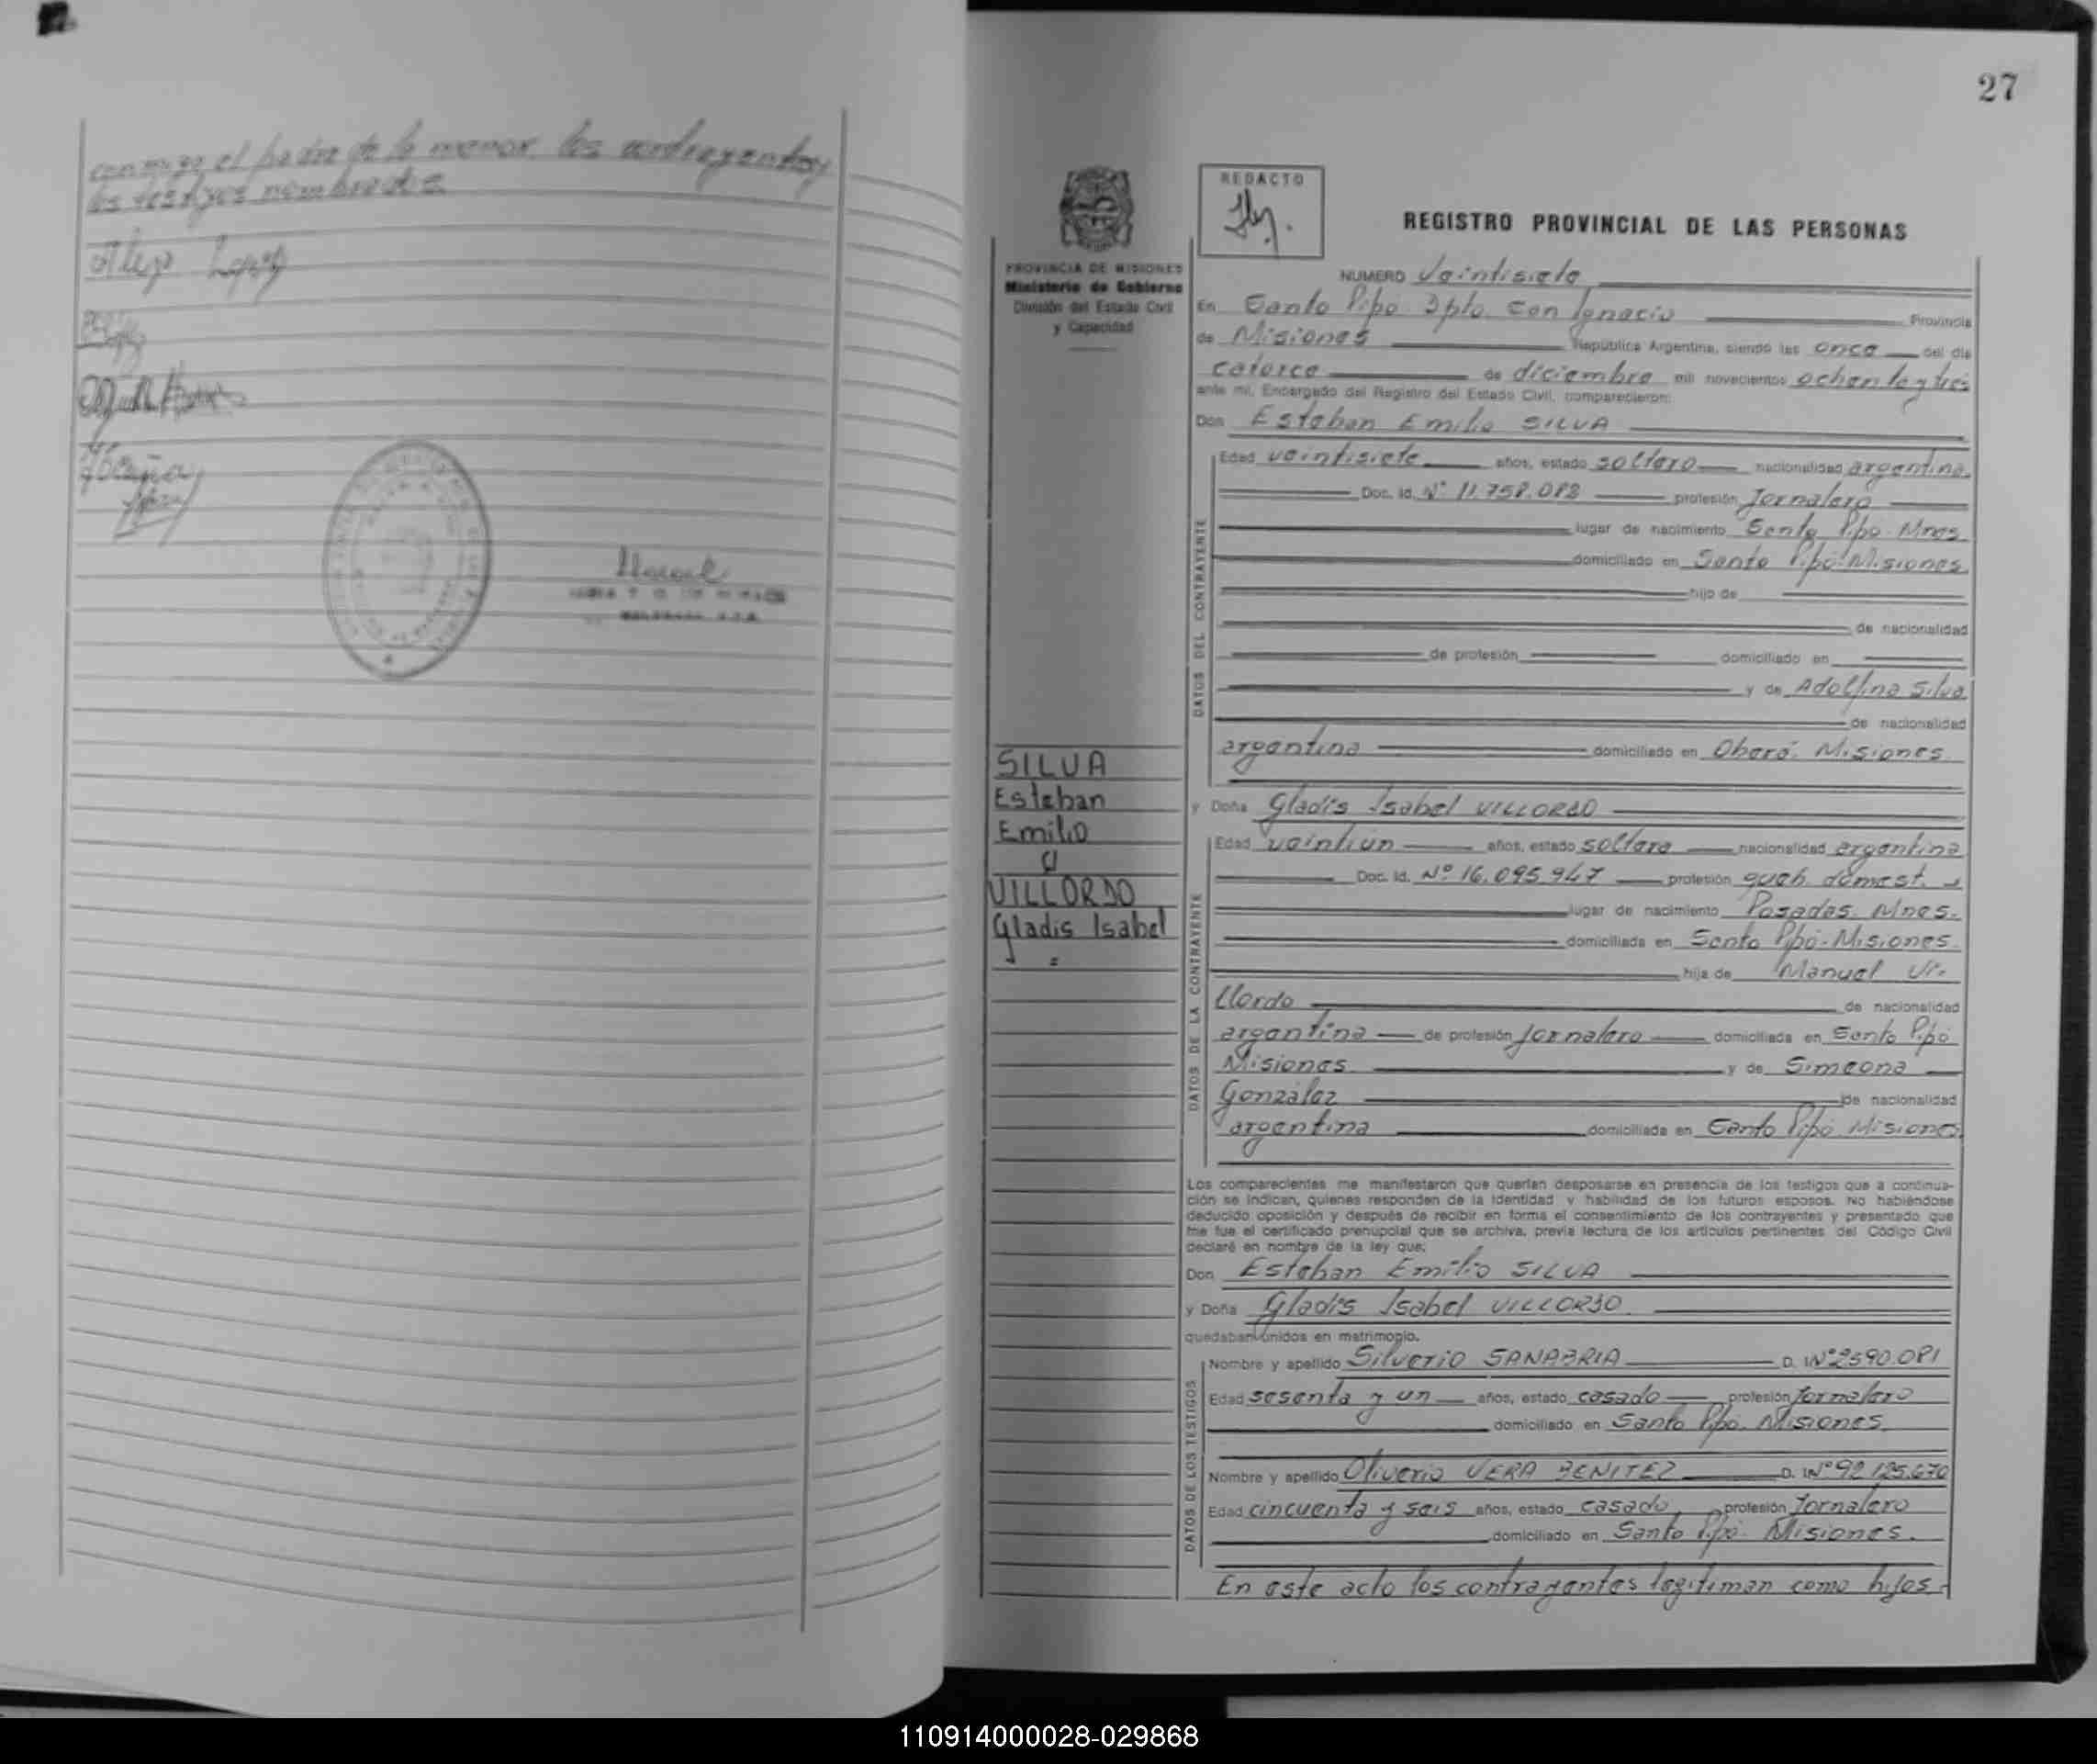 conmigo el padre de la menor, los contrayentes y
los testigos nombrados.
Alejo Lopez
27
REDACTO
REGISTRO PROVINCIAL DE LAS PERSONAS
PROVINCIA DE MISIONES
Ministerio de Gobierno
División del Estado Civil
y Capacidad
NUMERO Veintisiete
En Santo Pipo Dpto. San Ignacio Provincia
de Misiones República Argentina, siendo las once del día
catorce de diciembre mil novecientos ochenta y tres
ante mi, Encargado del Registro del Estado Civil, comparecieron:
Don Esteban Emilio SILVA
SILVA
Esteban
Emilio
VILLORDO
Gladis Isabel
DATOS DEL CONTRAYENTE
Edad veintisiete años, estado soltero nacionalidad argentina
Doc. Id. Nº 11.758.088 profesión Jornalero
lugar de nacimiento Santo Pipo Mnes
domiciliado en Santo Pipó Misiones
hijo de
de nacionalidad
de profesión domiciliado en
y de Adolfina Silva
de nacionalidad
argentina domiciliado en Oberá. Misiones
y Doña Gladis Isabel VILLORDO
DATOS DE LA CONTRAYENTE
Edad veintiun años, estado soltera nacionalidad argentina
Doc. Id. Nº 16.095.947 profesión queh. domest.
lugar de nacimiento Posadas. Mnes.
domiciliada en Santo Pipó-Misiones
hija de Manuel Vi-
llordo de nacionalidad
argentina de profesión Jornalero domiciliada en Santo Pipó
Misiones y de Simeona
González de nacionalidad
argentina domiciliada en Santo Pipó Misiones
Los comparecientes me manifestaron que querían desposarse en presencia de los testigos que a continua-
ción se indican, quienes responden de la identidad y habilidad de los futuros esposos. No habiéndose
deducido oposición y después de recibir en forma el consentimiento de los contrayentes y presentado que
me fue el certificado prenupcial que se archiva, previa lectura de los artículos pertinentes del Código Civil
declaré en nombre de la ley que:
Don Esteban Emilio SILVA
y Doña Gladis Isabel VILLORDO
quedaban unidos en matrimonio.
DATOS DE LOS TESTIGOS
Nombre y apellido Silverio SANABRIA D. INº 2590.081
Edad sesenta y un años, estado casado profesión Jornalero
domiciliado en Santo Pipó. Misiones
Nombre y apellido Oliverio VERA BENITEZ D. INº 92.125.670
Edad cincuenta y seis años, estado casado profesión Jornalero
domiciliado en Santo Pipó. Misiones.
En este acto los contrayentes legitiman como hijos
110914000028-029868